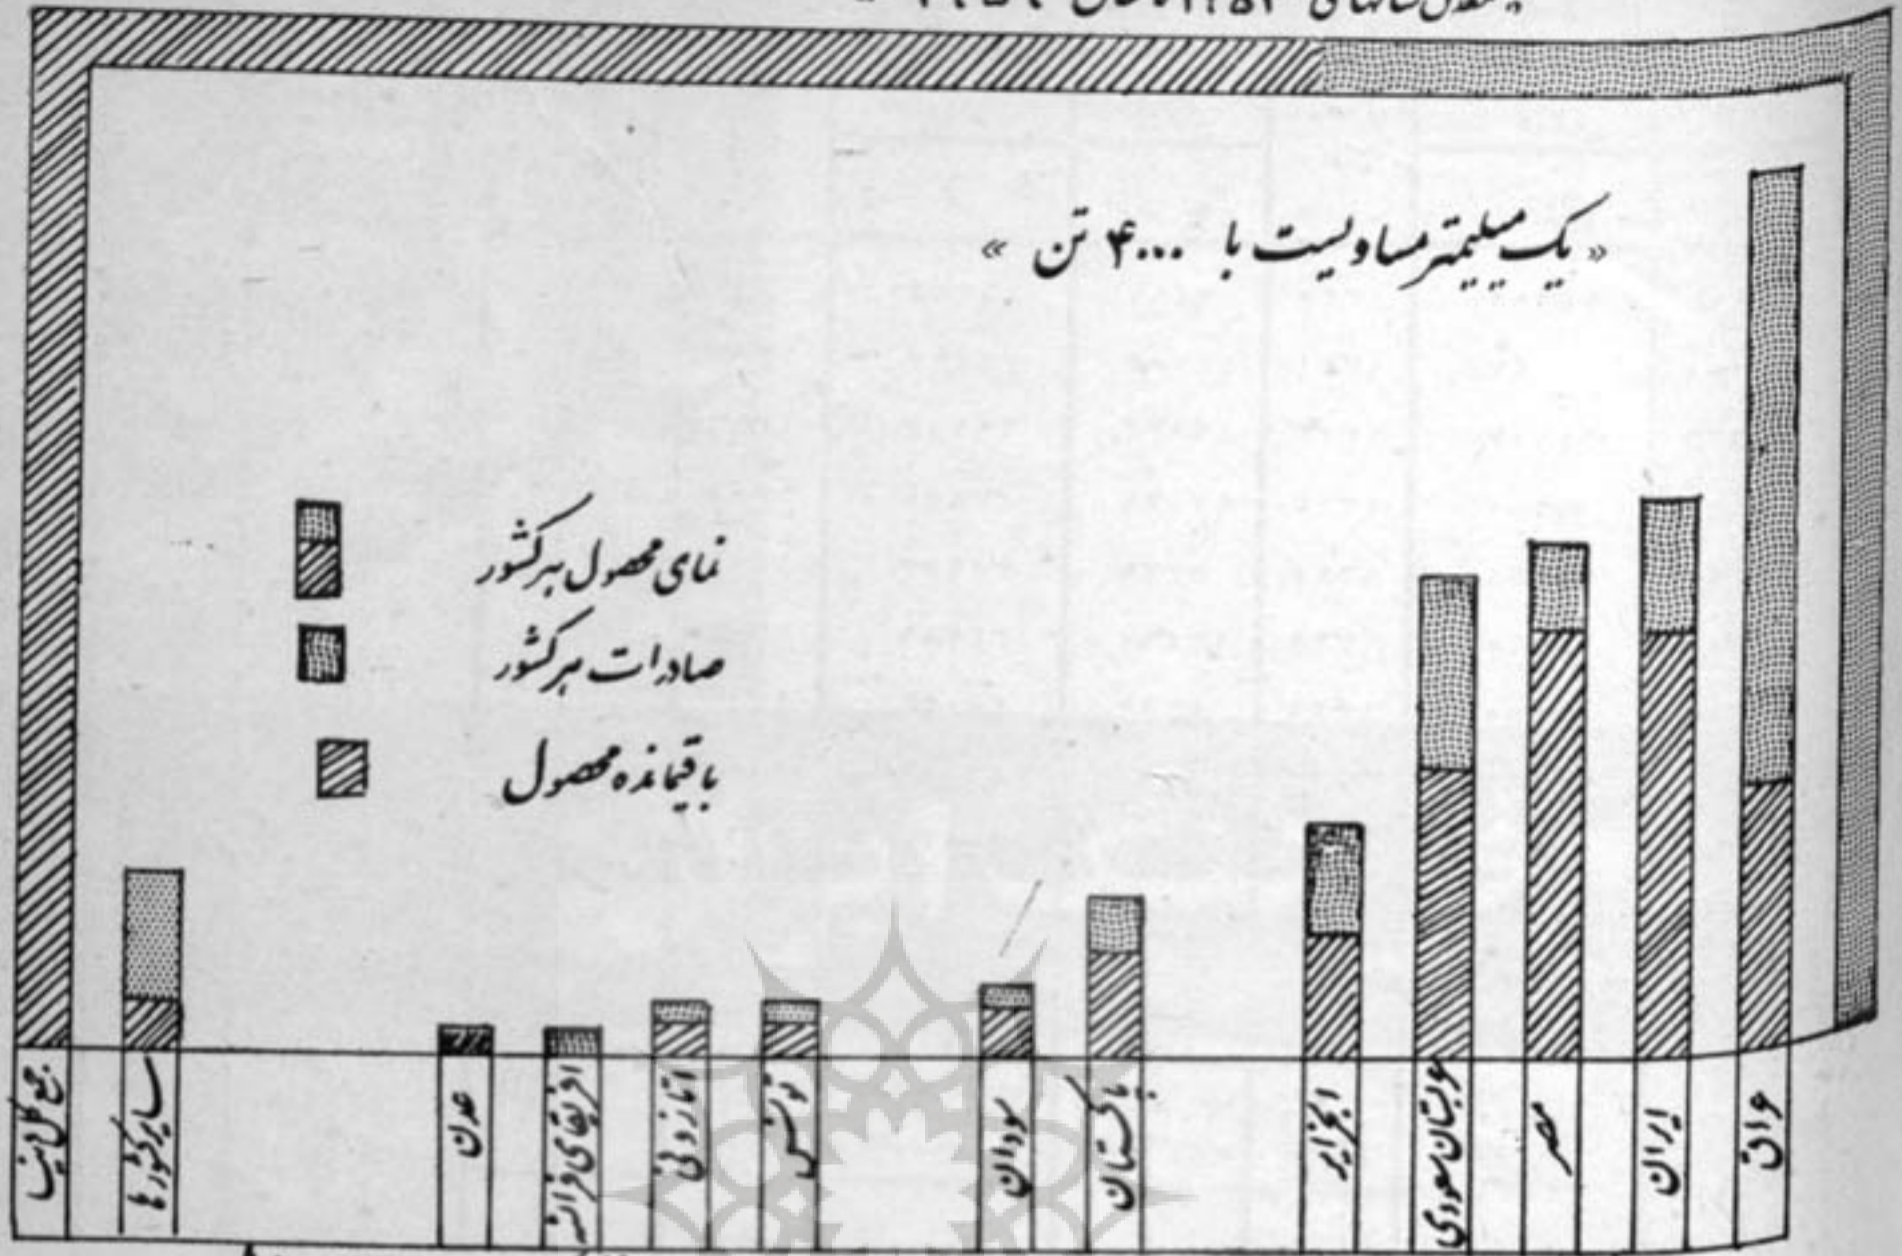 « یک میلیمتر مساویست با ۴۰۰۰ تن »
نمای محصول هر کشور
صادرات هر کشور
باقیمانده محصول
عراق
ایران
مصر
عربستان سعودی
الجزایر
پاکستان
سودان
تونس
اتازونی
افریقای فرانسه
عدن
سایر کشورها
جمع کل دنیا